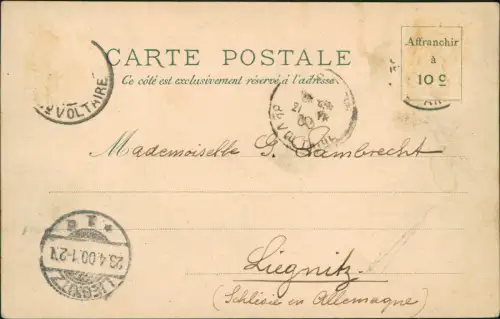 CARTE POSTALE
Ce côté est exclusivement réservé à l'adresse.
Affranchir
à
10 c
Bd VOLTAIRE
Bd VOLTAIRE
Mademoiselle G. Lambrecht
Liegnitz
(Schlesie en Allemagne)
LIEGNITZ
23.4.00.1-2N